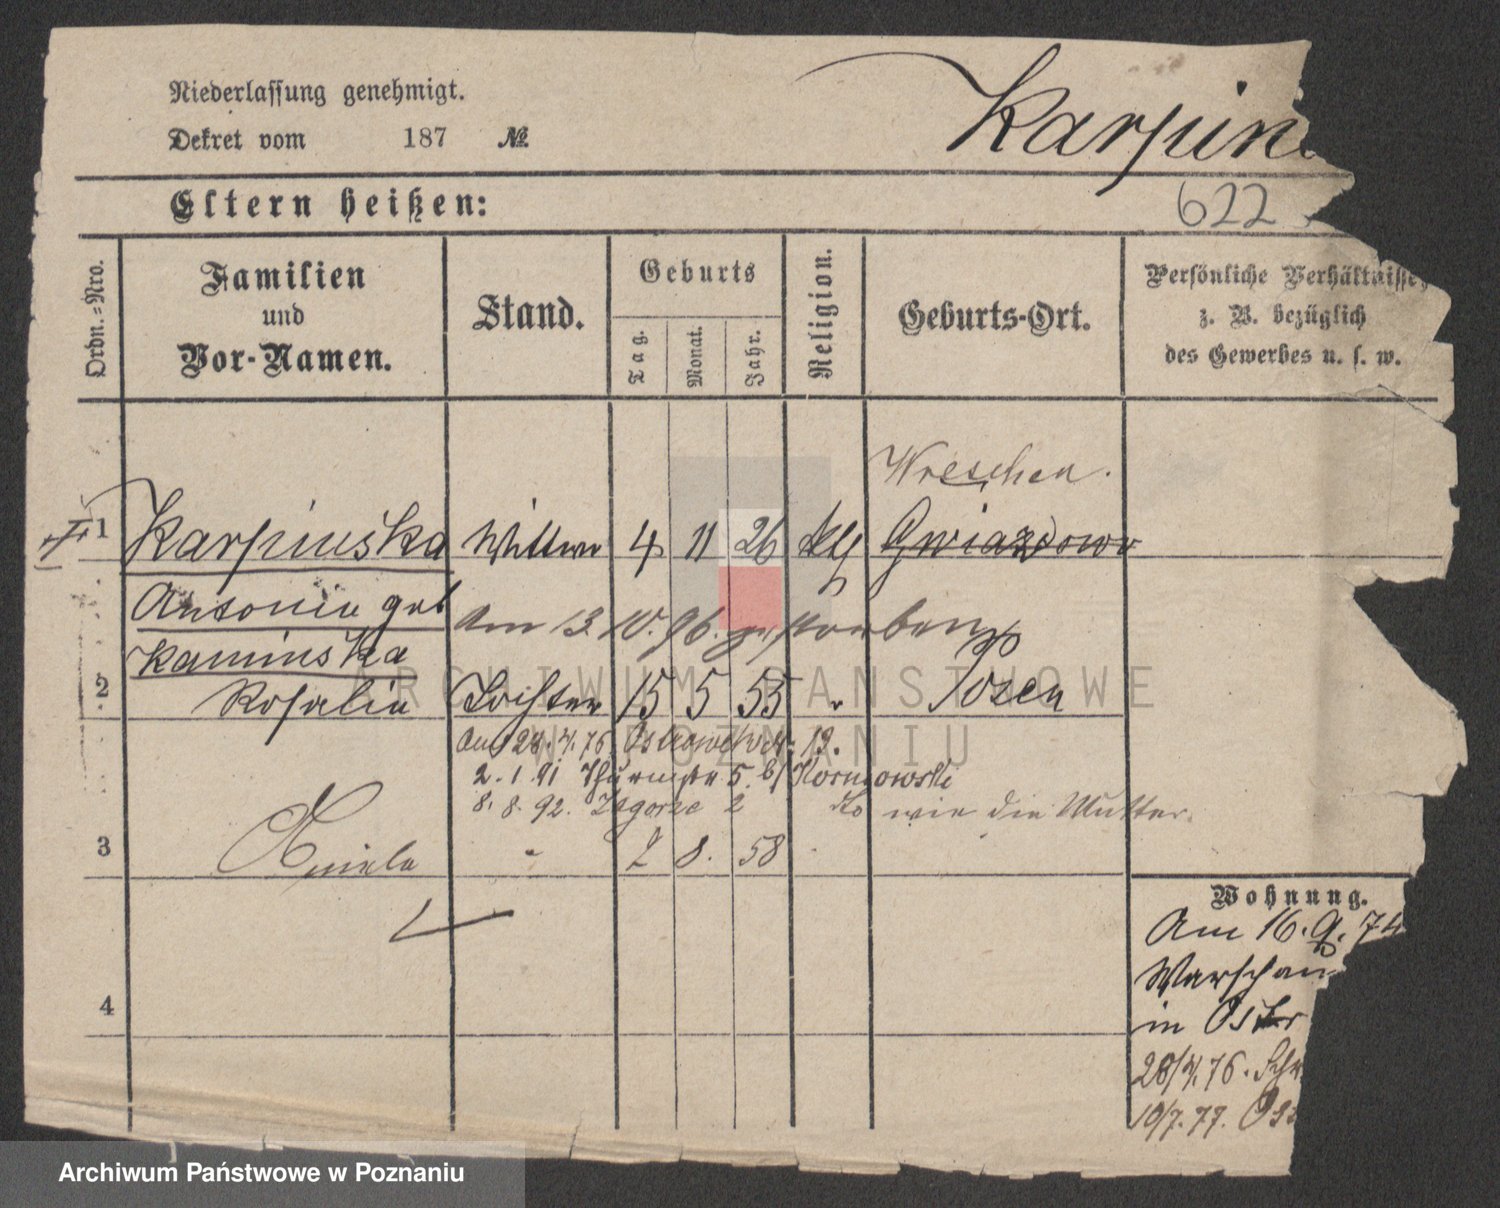 Niederlassung genehmigt.
Dekret vom 187 №
Karpin
622
Eltern heißen:
Ordn.-Nro.
Familien
und
Vor-Namen.
Stand.
Geburts
Tag.
Monat.
Jahr.
Religion.
Geburts-Ort.
Persönliche Verhältnisse,
z. B. bezüglich
des Gewerbes u. s. w.
Wreschen.
1 Karpinska Wittwe 4 11 26 Gwiazdowo
Antonia geb
Kaminska
Am 13. 10. 96. gestorben
2 Rosalia Tochter 15 5 55 " Posen
Am 28. 4. 76 19.
2. 1. 91 Thurmstr 5. b/
8. 8. 92. Zagorze 2 do wie die Mutter.
3 Aniela " 2 8. 58
4
Wohnung.
Am 16. 9. 74
Warschau
in
28/4. 76. Sch
10/7. 77.
ARCHIWUM PAŃSTWOWE
W POZNANIU
Archiwum Państwowe w Poznaniu